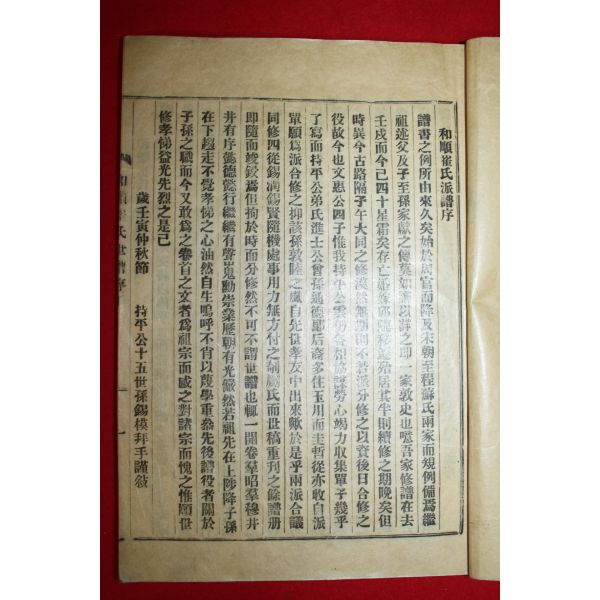 和順崔氏派譜序
譜書之例所由來久矣始於周官而降及宋朝至程蘇氏兩家而規例備焉繼
祖述父及子至孫家獻之傳莫如譜以譜之即一家敦史也噫吾家修譜在去
壬戌而今已四十星霜矣存亡婚嫁邱隨移遷殆居其半則續修之期晚矣但
時異今古路隔子午大同之修漠然無期則不若派分修之以資後日合修之
役故今也文惠公四子惟我持平公雲仍各相協議勞心竭力收集單子幾乎
了寫而持平公弟氏進士公曾孫通德郞后裔多住玉用而圭暫從亦收自派
單願爲派合修之抑該孫敦陸之風自先世孝友中出來歟於是乎兩派合議
同修四從錫潤錫賢隨機處事用力無方付之剞劂氏而世稿重刋之餘譜册
即隨而竣役焉但拘於時而分修然不可不謂世譜也輒一開卷羣昭羣穆井
井有序懿德懿行繼繼有聲嵬勳崇業歷朝有光儼然若祖先在上陟降子孫
在下趨走不覺孝悌之心油然自生嗚呼不肖以蔑學重忝先後譜役者關於
子孫之職而今又敢爲之卷首之文者爲祖宗而感之對諸宗而愧之惟願世
修孝悌益光先烈之是已
歲壬寅仲秋節 持平公十五世孫錫模拜手謹敍